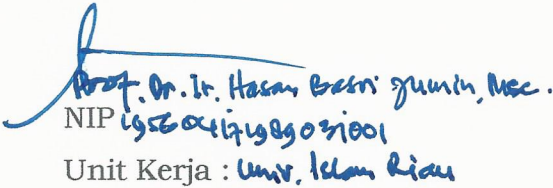 Prof. Dr. Ir. Hasan Basri Jumin, Msc.
NIP 195604171989031001
Unit Kerja : Univ. Islam Riau